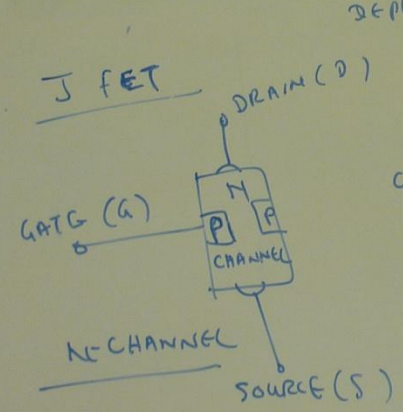 DEP
J FET
DRAIN (D)
N
GATG (G)
P
P
CHANNEL
N-CHANNEL
SOURCE (S)